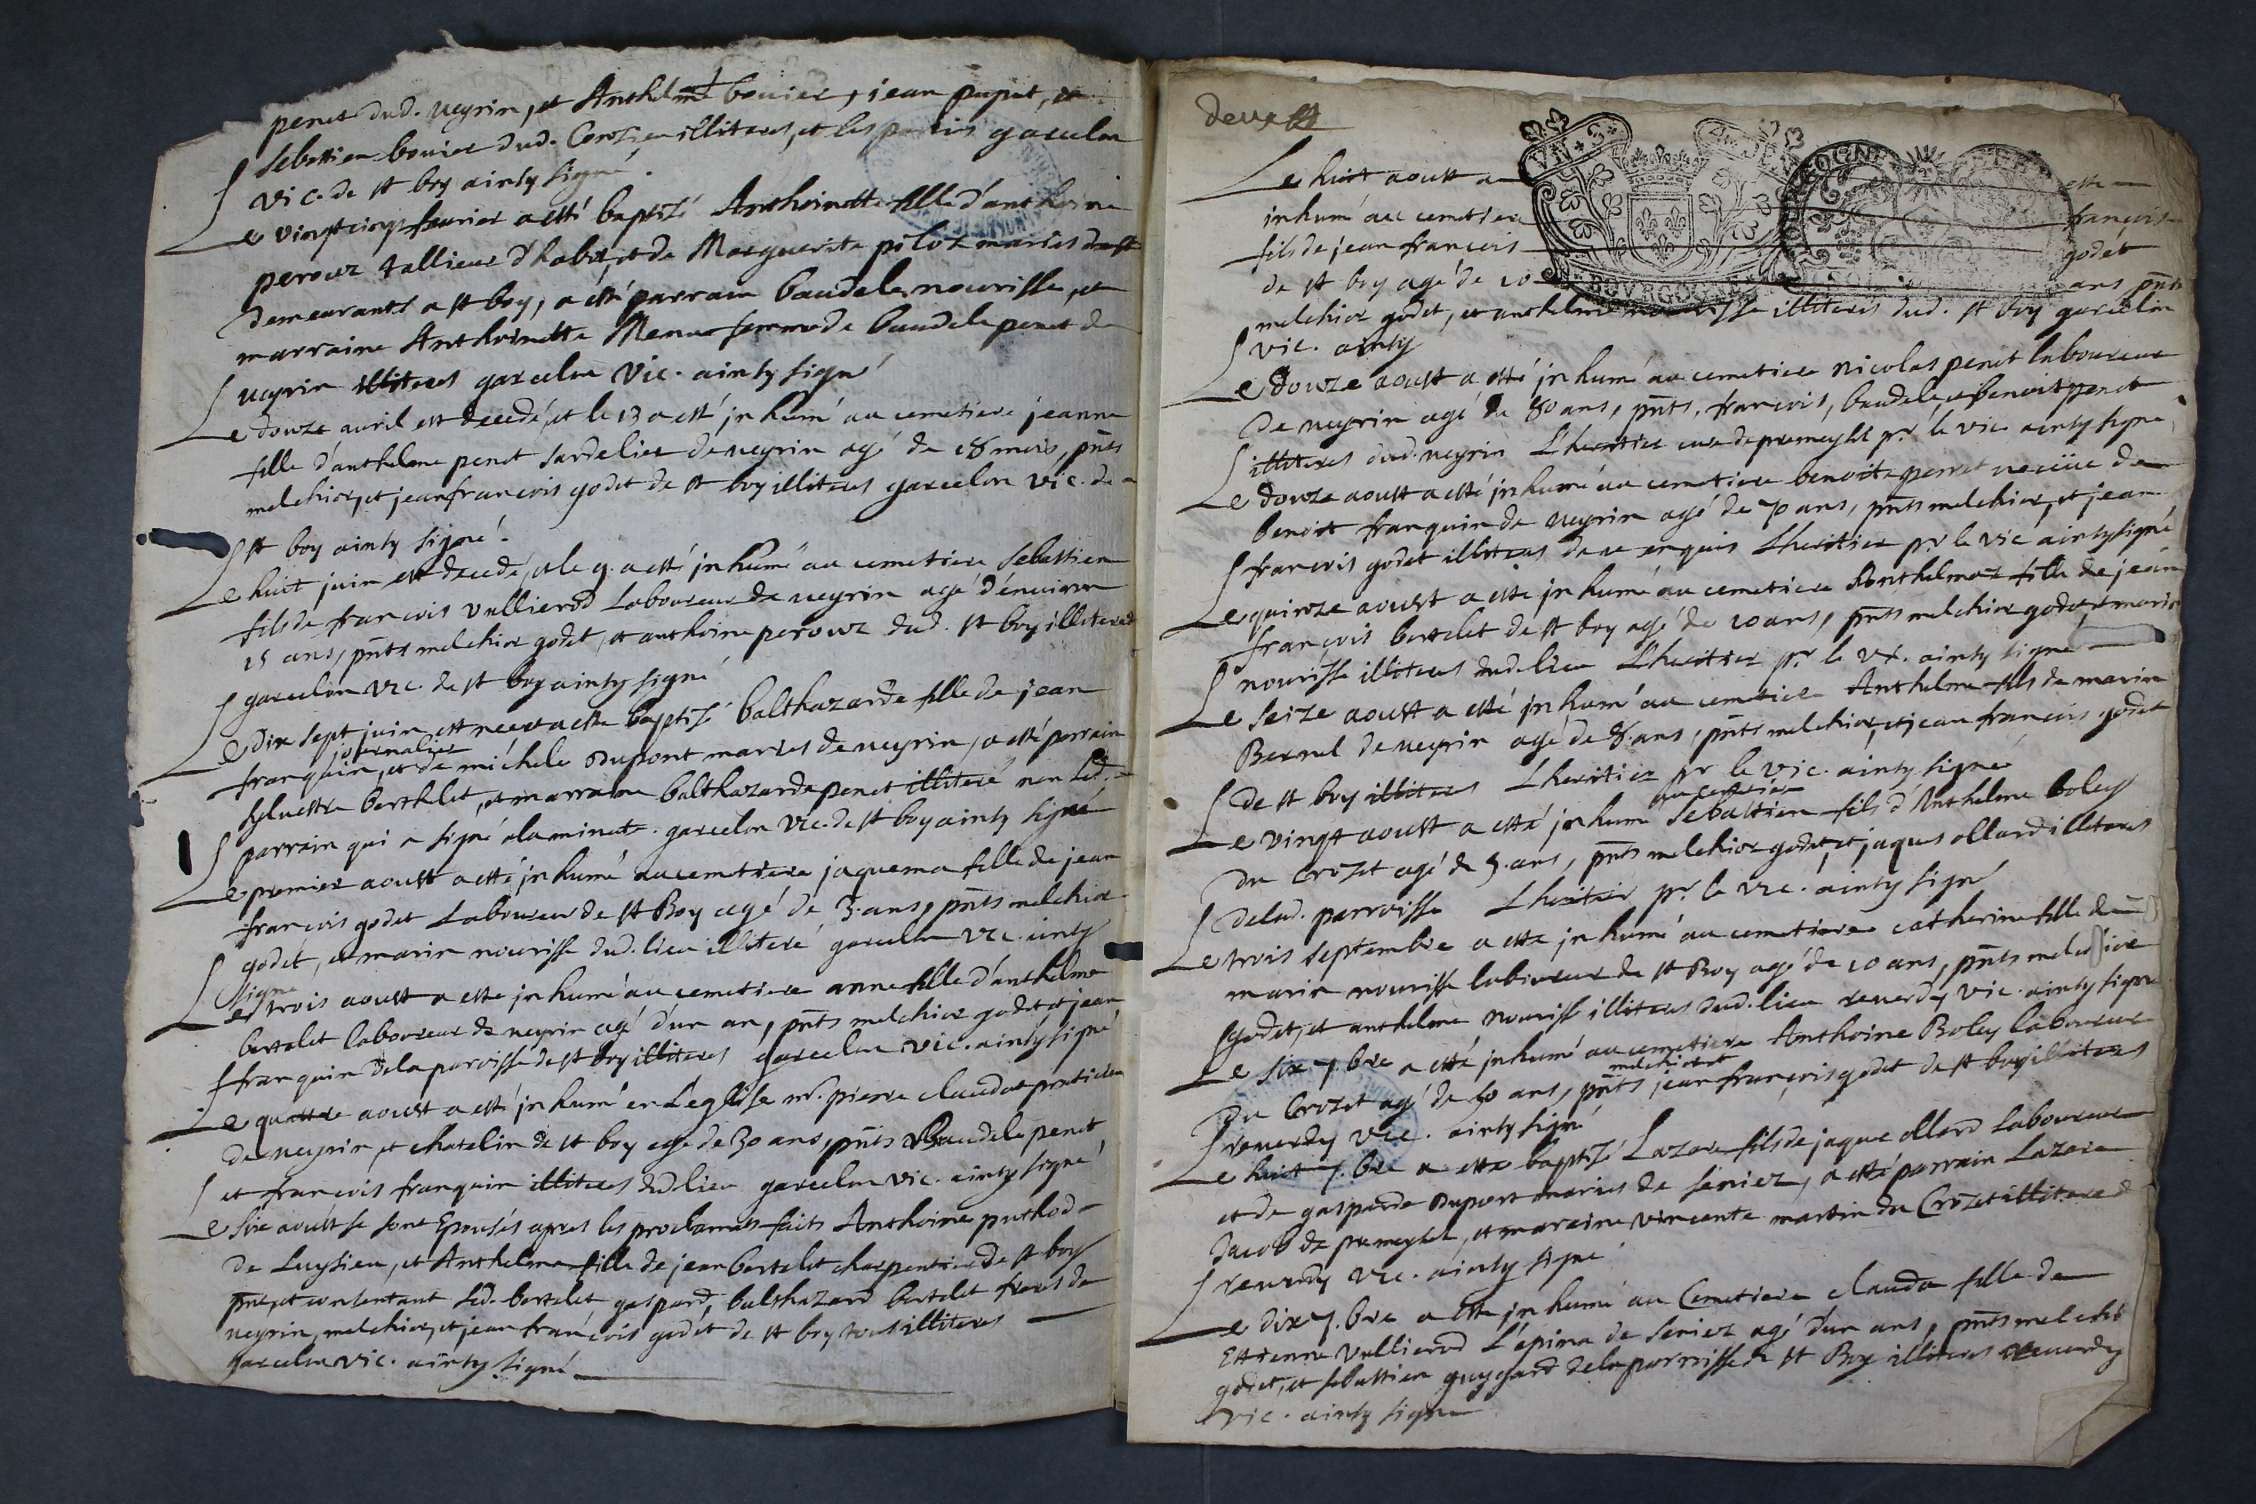 penet dud. neyrin, et Anthelme bouier, jean pupet, et
sebastien bouier dud. illiteres, et les garcelon
vic. de st boy ainsy signé.
Le vingt cinq feurier a esté baptizé Anthoinette fille d'anthoine
perouz tallieur d'habit, et de Marguerite pilot mariés
demeurants a st boy, a esté parrain baudele nourisse, et
marraine Anthoinette Menu femme de baudele penet de
neyrin illiteres garcelon vic. ainsy signé
Le douze auril est decedé, et le 13 a esté inhumé au cemetiere jeanne
fille d'anthelme penet sardelier de neyrin agé de 18 mois, pnts
melchior, et jean françois godet de st boy illiteres garcelon vic. de
st boy ainsy signé.
Le huit juin est decedé, et le 9. a esté inhumé au cemetiere sebastien
fils de françois vullierod laboureur de neyrin agé d'enuiron
25 ans, pnts melchior godet, et anthoine perouz dud. st boy illiteres
garcelon vic. de st boy ainsy signé
Le dix sept juin est nee et a este baptizé balthazarde fille de jean
journalier
franquin, et de michele dupont mariés de neyrin, a esté parrain
syluestre berthelet, et marraine balthazarde penet illiteré non led.
parrain qui a signé a la minute. garcelon vic. de st boy ainsy signé
Le premier aoust a esté inhumé au cemetiere jaquema fille de jean
françois godet laboureur de st Boy agé de 3. ans, pnts melchior
godet, et marin nourisse dud. lieu illiteré garcelon vic. ainsy
signé
Le trois aoust a esté inhumé au cemetiere anne fille d'anthelme
bertelet laboureur de neyrin agé d'un an, pnts melchior godet et jean
franquin de la paroisse de st boy illiteres garcelon vic. ainsy signé
Le quattre aoust a esté inhumé en L'eglise mr. pierre claudat praticien
de neyrin, et chatelin de st boy agé de 30 ans, pnts Baudele penet
et françois franquin illiteres dud lieu garcelon vic. ainsy signé
Le six aoust se sont Epousés apres les proclamats faits Anthoine puthod
de Luysieu, et Anthelma fille de jean bertelet charpentier de st boy
pnt, et consentant led. bertelet gaspard, balthazard bertelet freres de
neyrin, melchior, et jean françois godet de st boy tous illiteres
garcelon vic. ainsy signé
deux
Le huit aoust a esté
inhumé au cemetiere françois
fils de jean françois godet
de st boy agé de 10 ans pnts
melchior godet, et anthelme nourisse illiteres dud. st boy garcelon
vic. ainsy
Le douze aoust a esté inhumé au cemetiere nicolas penet laboureur
de neyrin agé de 80 ans, pnts, françois, baudele, et benoit penet
illiteres dud. neyrin L'heritier curé de premeyzel pr. le vic ainsy signé
Le douze aoust a esté inhumé au cemetiere benoite perret veuve de
benoit franquin de neyrin agé de 70 ans, pnts melchior, et jean
françois godet illiteres de ce enquis L'heritier pr. le vic ainsy signé
Le quinze aoust a esté inhumé au cemetiere Anthelma fille de jean
françois bertelet de st boy agé de 10 ans, pnts melchior godet, et marin
nourisse illiteres dud. lieu L'heritier pr. le vic. ainsy signé
Le seize aoust a esté inhumé au cemetiere Anthelme fils de marin
Bernel de neyrin agé de 8. ans, pnts melchior, et jean françois godet
de st boy illiteres L'heritier pr le vic. ainsy signé
au cemetiere
Le vingt aoust a esté inhumé sebastien fils d'Anthelme boley
du Crozet agé de 5. ans, pnts melchior godet, et jaques ollard illiteres
de lad. parroisse L'heritier pr. le vic. ainsy signé
Le trois septembre a esté inhumé au cemetiere catherine fille de
marin nourisse laboureur de st Boy agé de 10 ans, pnts melchior
godet, et anthelme nourisse illiteres dud. lieu reuerdy vic. ainsy signé
Le six 7.bre a esté inhumé au cemetiere Anthoine Boley laboureur
melchior et
du Crozet agé de 50 ans, pnts jean françois godet de st boy illiteres
reuerdy vic. ainsy signé
Le huit 7.bre a esté baptizé Lazare fils de jaque ollard laboureur
et de gasparde dupont mariés de seniez, a esté parrain Lazare
Jacob de premeyzel, et maraine vincente martin du Crozet illitere
reuerdy vic. ainsy signé
Le dix 7.bre a esté inhumé au Cemetiere clauda fille de
Ettienne vullierod L'epina de seniez agé d'un ans, pnts melchior
godet, et sebastien guygard de la parroisse de st Boy illiteres reuerdy
vic. ainsy signé